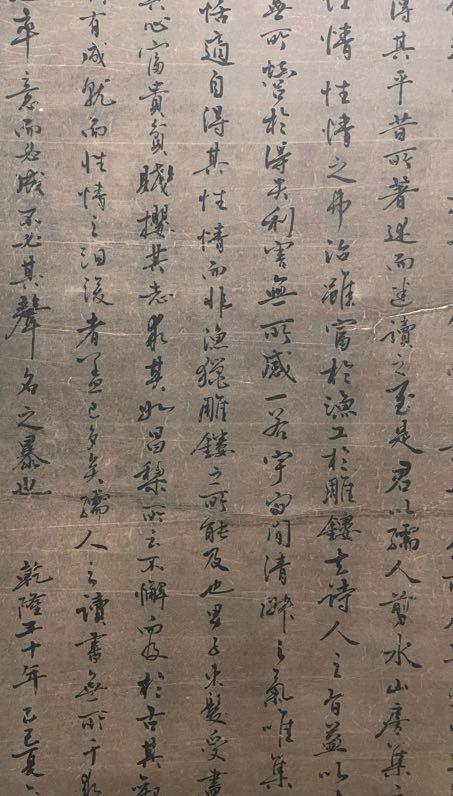 得其平昔所著述而遂讀之至是君以孺人剪水山房集
性情性情之弗治雖富於漁工於雕鏤去詩人之旨益以
無所營於得失利害無所感一若宇宙間清泠之氣唯集
恬適自得其性情而非漁獵雕鏤之所能及也男子束髮受書
其心富貴貧賤攖其志求其如昌黎所云不懈而及於古其
有成就而性情之汩沒者蓋已多矣孺人之讀書無所干
率意而必成不必其聲名之暴也
乾隆五十年乙巳夏